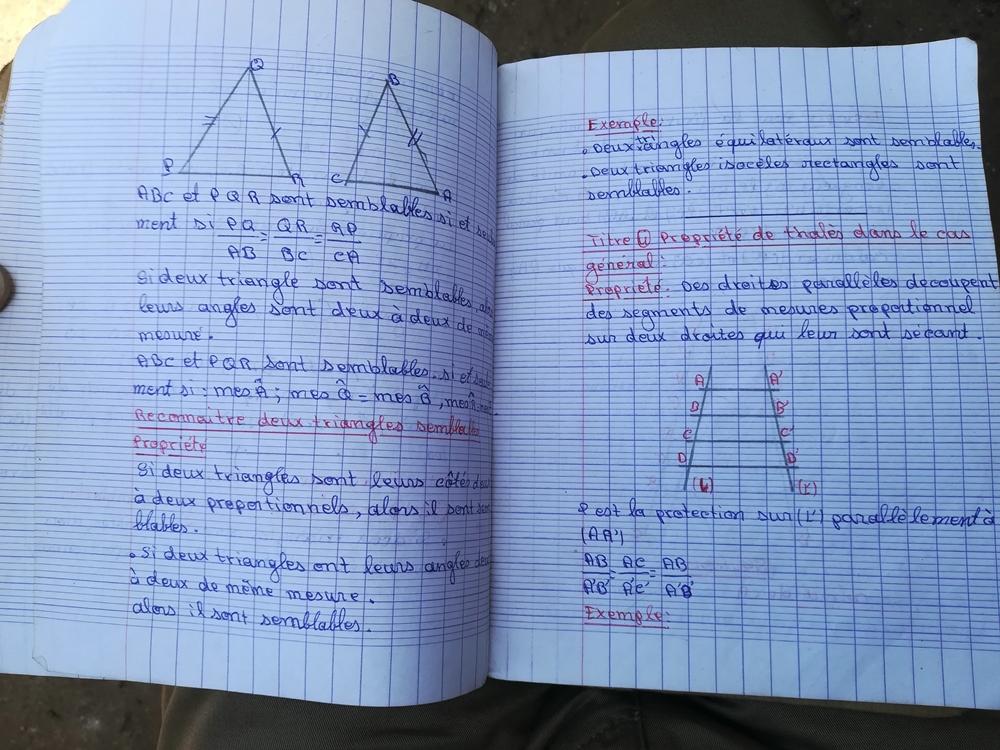 Q
B
P
R
C
A
ABC et PQR sont semblables si et seule
ment si PQ/AB = QR/BC = RP/CA
Si deux triangle sont semblables alors
leurs angles sont deux à deux de même
mesure.
ABC et PQR sont semblables si et seule
ment si : mes Â ; mes Q̂ = mes B̂, mes R̂
Reconnaitre deux triangles semblables
Propriété
Si deux triangles sont leurs côtés deux
à deux proportionnels, alors il sont sem
blables.
. Si deux triangles ont leurs angles deux
à deux de même mesure.
alors il sont semblables.
Exemple:
. Deux triangles équilatéraux sont semblables.
. Deux triangles isocèles rectangles sont
semblables.
Titre Propriété de thalès dans le cas
général:
Propriété: Des droites parallèles découpent
des segments de mesures proportionnel
sur deux droites qui leur sont sécant.
A A'
B B'
C C'
D D'
(L) (L')
P est la protection sur (L') parallèlement à
(AA')
AB/A'B' = AC/A'C' = AB/A'B'
Exemple: